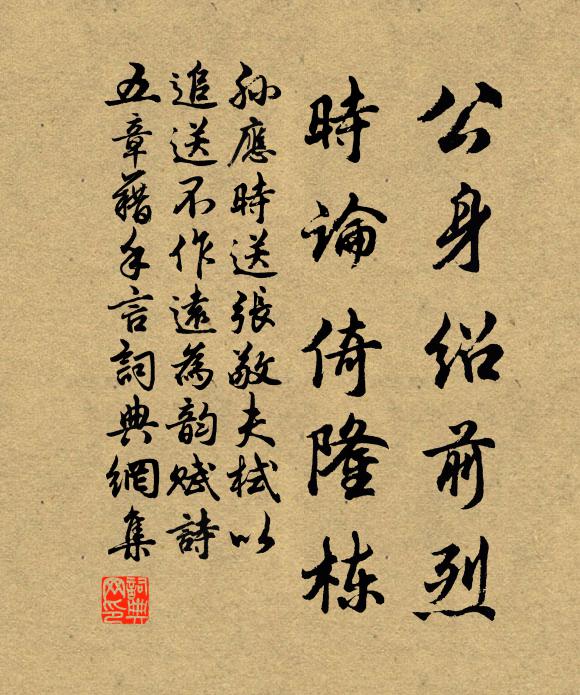 公身紹前烈
時論倚隆棟
孫應時送張敬夫栻以
追送不作遠為韵賦詩
五章藉手言詞典網集
詞典网印